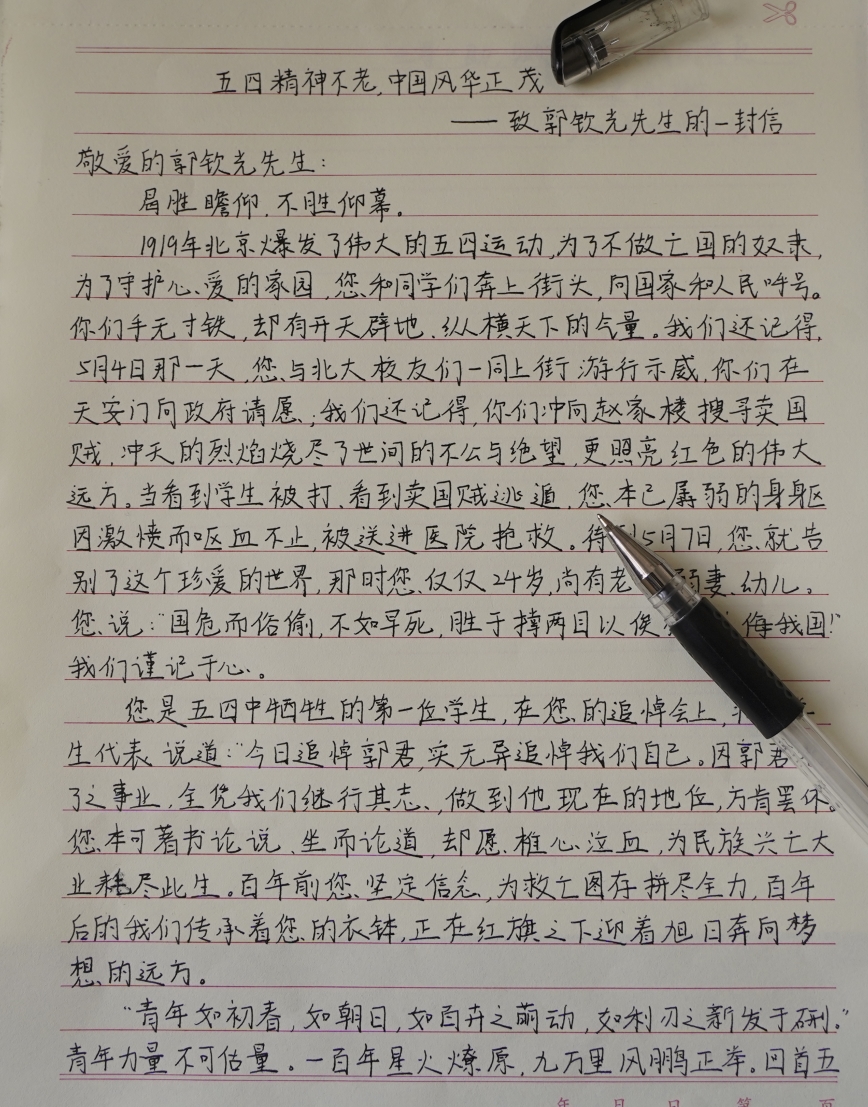 五四精神不老,中国风华正茂
——致郭钦光先生的一封信
敬爱的郭钦光先生:
曷胜瞻仰,不胜仰幕。
1919年北京爆发了伟大的五四运动,为了不做亡国的奴隶,
为了守护心爱的家园,您和同学们奔上街头,向国家和人民呼号。
你们手无寸铁,却有开天辟地、纵横天下的气量。我们还记得,
5月4日那一天,您与北大校友们一同上街游行示威,你们在
天安门向政府请愿;我们还记得,你们冲向赵家楼搜寻卖国
贼,冲天的烈焰烧尽了世间的不公与绝望,更照亮红色的伟大
远方。当看到学生被打、看到卖国贼逃遁,您本已孱弱的身躯
因激愤而呕血不止,被送进医院抢救。待到5月7日,您就告
别了这个珍爱的世界,那时您仅仅24岁,尚有老 妻、幼儿。
您说:“国危而俗偷,不如早死,胜于掉两目以俟 侮我国!”
我们谨记于心。
您是五四中牺牲的第一位学生,在您的追悼会上,
生代表说道:“今日追悼郭君,实无异追悼我们自己。因郭君
了之事业,全凭我们继行其志,做到他现在的地位,方肯罢休。
您本可著书论说、坐而论道,却愿椎心泣血,为民族兴亡大
业耗尽此生。百年前您坚定信念,为救亡图存拼尽全力,百年
后的我们传承着您的衣钵,正在红旗之下迎着旭日奔向梦
想的远方。
“青年如初春,如朝日,如百卉之萌动,如利刃之新发于硎。”
青年力量不可估量。一百年星火燎原,九万里风鹏正举。回首五
年 月 日 第 页